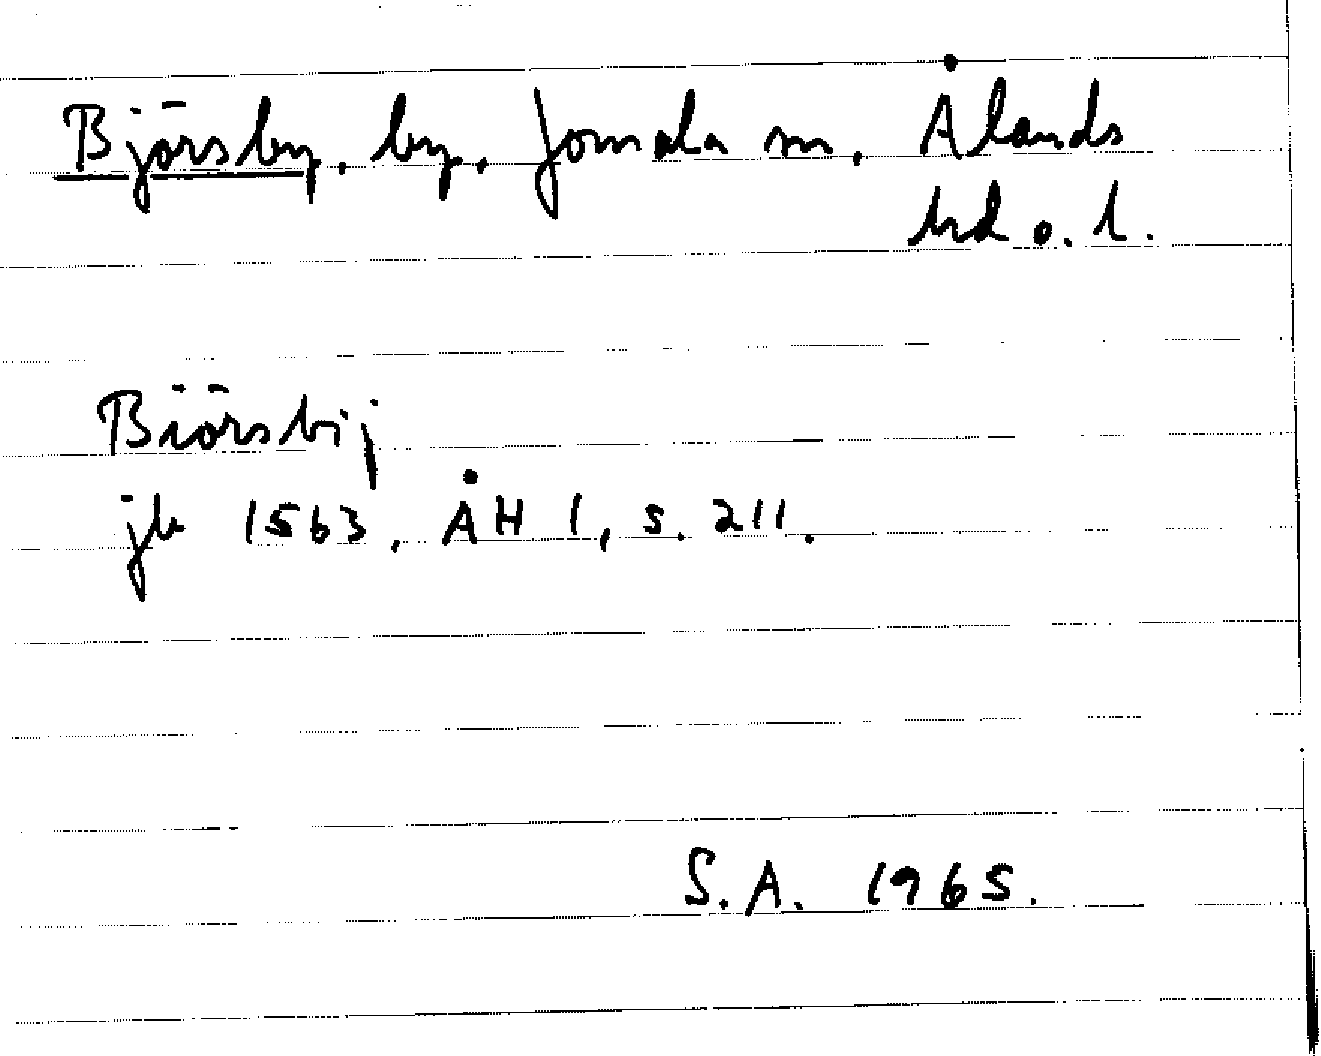 Björsby, by, Jomala sn, Ålands
hd o. l.
Biörsbij
jb 1563, ÅH 1, s. 211.
S.A. 1965.